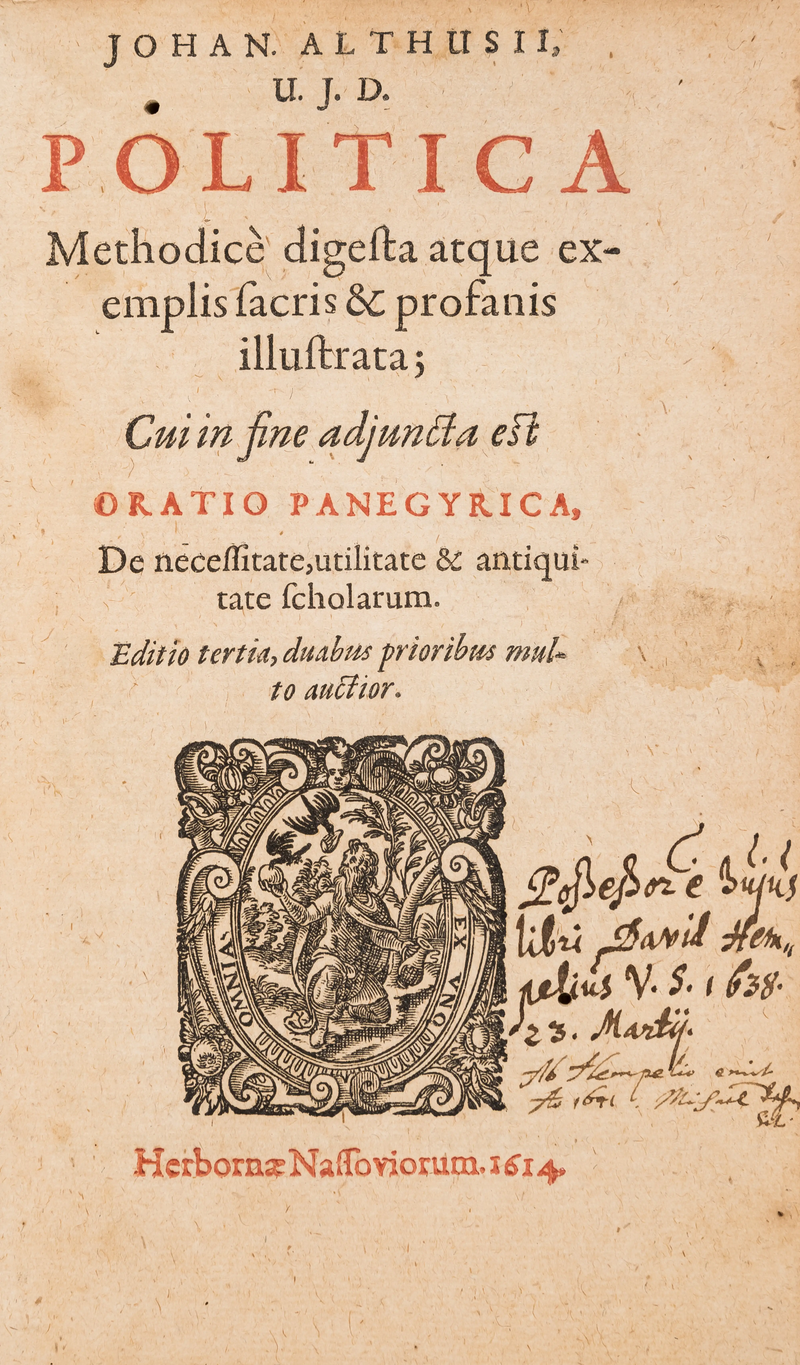 JOHAN. ALTHUSII,
U. J. D.
POLITICA
Methodicè digeſta atque ex-
emplis ſacris & profanis
illuſtrata;
Cui in fine adjuncta eſt
ORATIO PANEGYRICA,
De neceſſitate, utilitate & antiqui-
tate ſcholarum.
Editio tertia, duabus prioribus mul-
to auctior.
OMNIA
EX VNO
Poſſeſſore hujus
libri David Hem„
pelius V. S. 1638.
23. Martij.
Hempelio emit
Herbornæ Naſſoviorum. 1614.